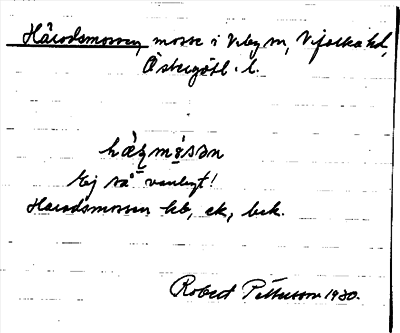 Häradsmossen, mosse i Viby sn, Vifolka hd,
Östergötl. l.
Ej så vanligt!
Haradsmossen hb, ek, bek.
Robert Pettersson 1930.